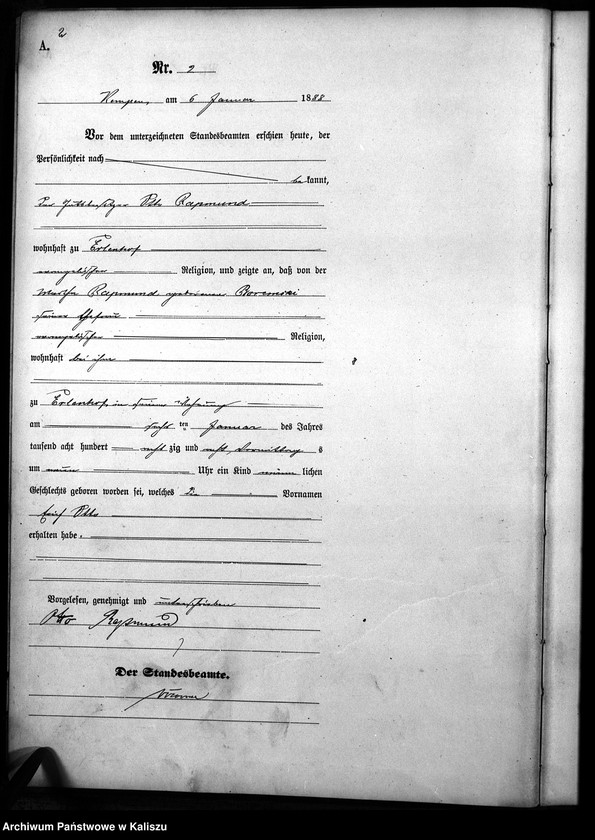 2
A.
Nr. 2
Kempen, am 6 Januar 1888
Vor dem unterzeichneten Standesbeamten erschien heute, der
Persönlichkeit nach
bekannt,
der Gutsbesitzer Otto Rapmund
wohnhaft zu Erlenhof
evangelischer Religion, und zeigte an, daß von der
Martha Rapmund, geborenen
seiner Ehefrau
evangelischer Religion,
wohnhaft bei ihm
zu Erlenhof, in seiner Wohnung
am ten Januar des Jahres
tausend acht hundert acht zig und acht Vormittags
um neun Uhr ein Kind männlichen
Geschlechts geboren worden sei, welches die Vornamen
Otto
erhalten habe.
Vorgelesen, genehmigt und unterschrieben
Otto Rapmund
Der Standesbeamte.
Archiwum Państwowe w Kaliszu